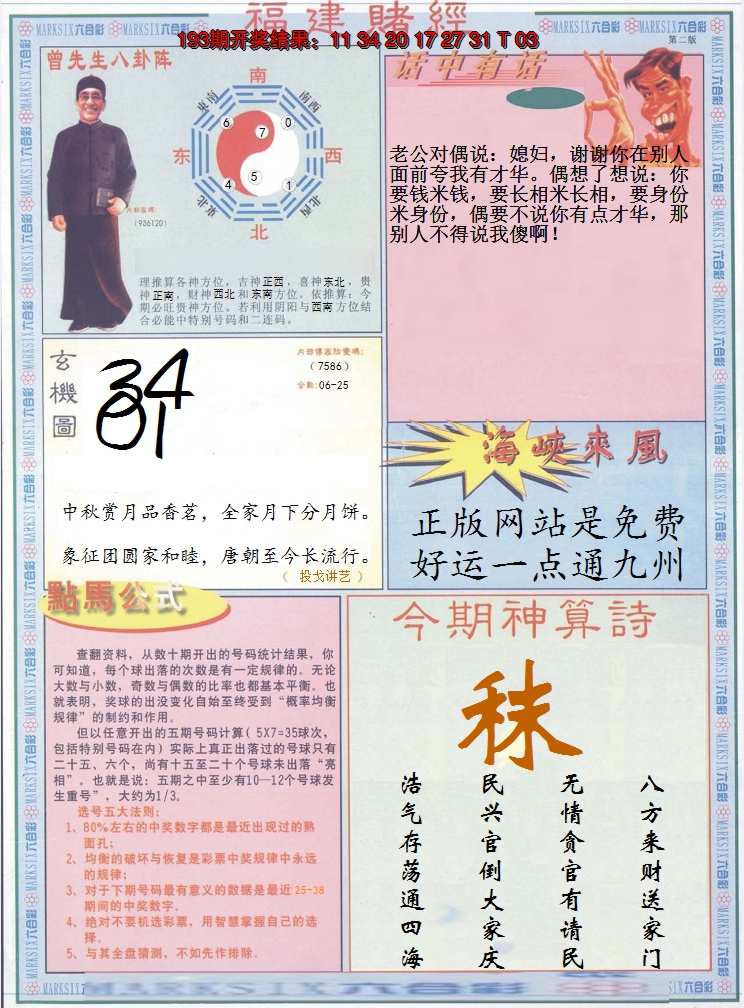 福建賭經
193期开奖结果：11 34 20 17 27 31 T 03
第二版
MARKSIX六合彩
曾先生八卦阵
南
東南
南西
6
7
0
东
西
4
5
1
東北
北西
北
內部密碼:
(936120)
理推算各神方位，吉神正西，喜神东北，贵
神正南，财神西北和东南方位。依推算：今
期必旺贵神方位。若利用阴阳与西南方位结
合必能中特别号码和二连码。
话中有话
老公对偶说：媳妇，谢谢你在别人
面前夸我有才华。偶想了想说：你
要钱米钱，要长相米长相，要身份
米身份，偶要不说你有点才华，那
别人不得说我傻啊！
玄機圖
34
01
（7586）
合数:06-25
中秋赏月品香茗，全家月下分月饼。
象征团圆家和睦，唐朝至今长流行。
（ 投戈讲艺 ）
海峽來風
正版网站是免费
好运一点通九州
點馬公式
查翻资料，从数十期开出的号码统计结果，你
可知道，每个球出落的次数是有一定规律的。无论
大数与小数，奇数与偶数的比率也都基本平衡。也
就表明，奖球的出没变化自始至终受到“概率均衡
规律”的制约和作用。
但以任意开出的五期号码计算( 5X7=35球次，
包括特别号码在内) 实际上真正出落过的号球只有
二十五、六个，尚有十五至二十个号球未出落“亮
相”。也就是说：五期之中至少有10—12个号球发
生重号”，大约为1/3。
选号五大法则：
1、80%左右的中奖数字都是最近出现过的熟
面孔；
2、均衡的破坏与恢复是彩票中奖规律中永远
的规律；
3、对于下期号码最有意义的数据是最近25-38
期间的中奖数字。
4、绝对不要机选彩票，用智慧掌握自己的选
择。
5、与其全盘猜测，不如先作排除。
今期神算詩
秣
八方来财送家门
无情贪官有请民
民兴官倒大家庆
浩气存荡通四海